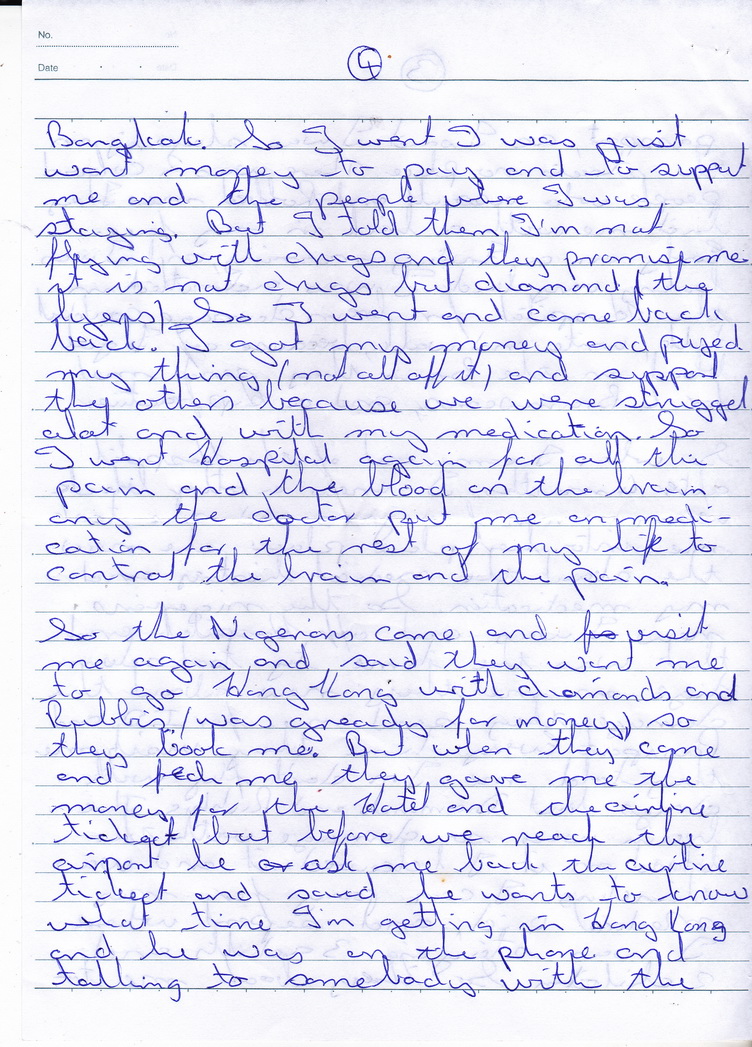 No.
Date
4
Bangkok. So I went I was just
want money to pay and to support
me and the people where I was
staying. But I told them I'm not
flying with drugs and they promise me
it is not drugs but diamond (the
lyers) So I went and come back
back. I got my money and payed
my thing (not all off it) and support
the others because we were struggel
alot and with my medication. So
I went Hospital again for all the
pain and the blood on the brain
any the doctor put me on medi-
cation for the rest of my life to
control the brain and the pain.
So the Nigerians came and visit
me again and said they want me
to go Hong Kong with diamonds and
Rubbis (was gready for money) so
they book me. But when they came
and fech me they gave me the
money for the Hotel and the airline
ticket but before we reach the
airport he ask me back the airline
ticket and said he wants to know
what time I'm getting in Hong Kong
and he was on the phone and
talking to somebody with the